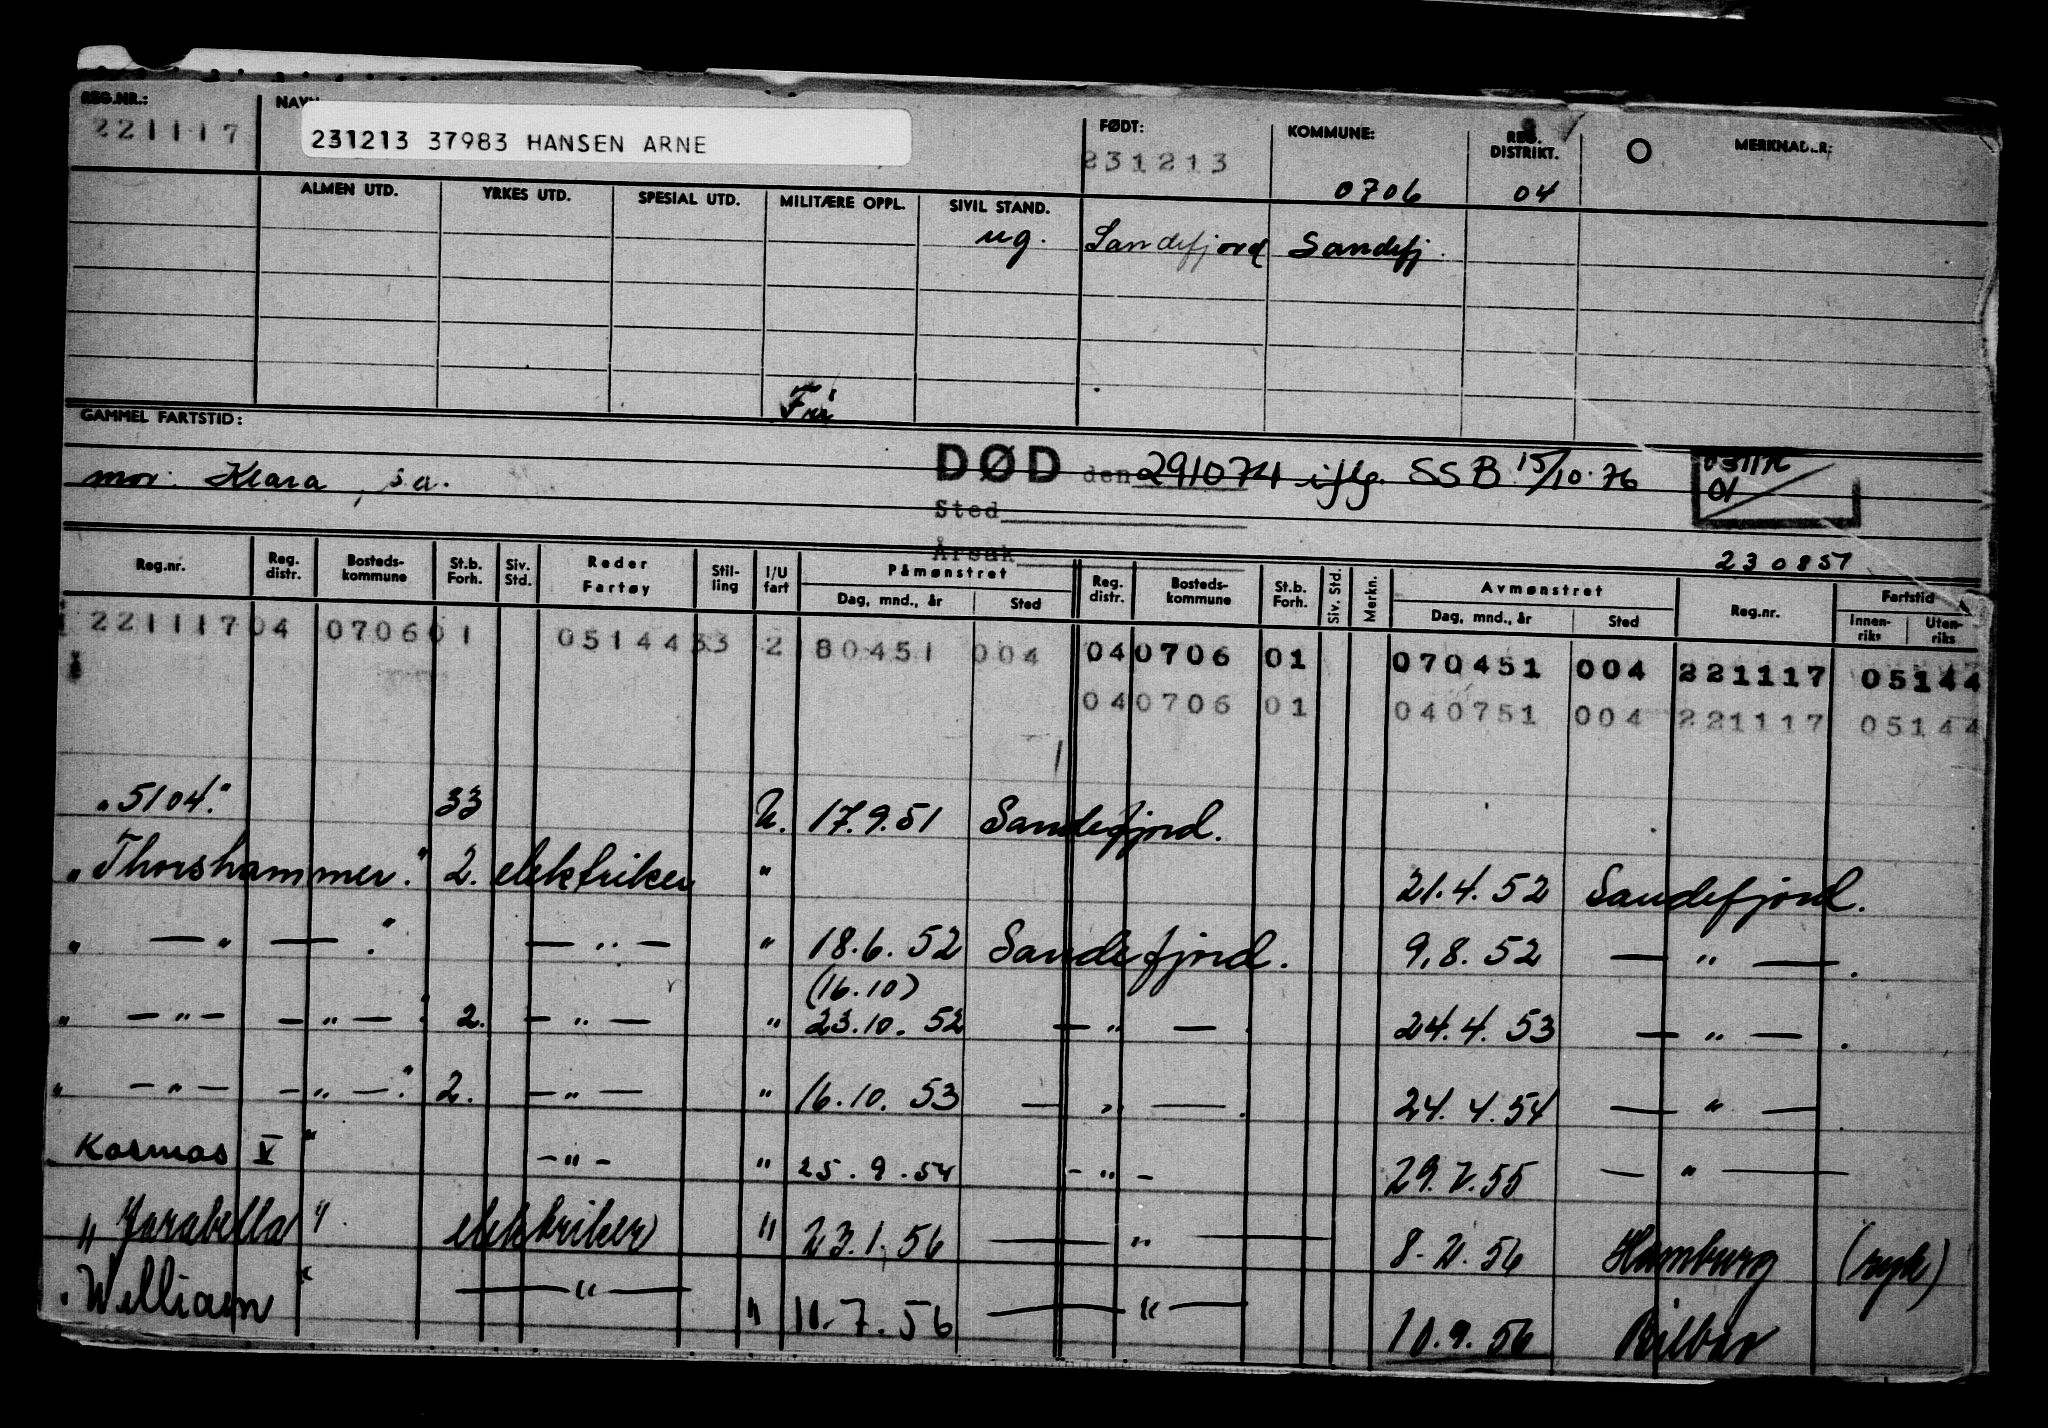 REG.NR.: NAVN FØDT: KOMMUNE: REG. DISTRIKT. MERKNADER:
221117 231213 37983 HANSEN ARNE 231213 0706 04
ALMEN UTD. YRKES UTD. SPESIAL UTD. MILITÆRE OPPL. SIVIL STAND.
ug. Sandefjord Sandefj.
GAMMEL FARTSTID:
mor: Klara, s.a. DØD den 291074 iflg. SSB 15/10-76 031176
01
Sted
Årsak 230857
Reg.nr. Reg. distr. Bosteds-kommune St.b. Forh. Siv. Std. Reder Fartøy Stil-ling I/U fart Påmønstret Dag, mnd., år Sted Reg. distr. Bosteds-kommune St.b. Forh. Siv. Std. Merkn. Avmønstret Dag, mnd., år Sted Reg.nr. Fartstid Innen-riks Uten-riks
221117 04 0706 01 05144 33 2 80451 004 04 0706 01 070451 004 221117 05144
04 0706 01 040751 004 221117 05144
"5104." 33 U. 17.9.51 Sandefjord.
"Thorshammer." 2. elektriker " 21.4.52 Sandefjord.
" — " — " — " — " 18.6.52 Sandefjord. 9.8.52 — " — .
(16.10)
" — " — — " — " 2. — " — " 23.10.52 — " — . 24.4.53 — " — .
" — " — — " — " 2. — " — " 16.10.53 — " — . 24.4.54 — " —
Kosmos V " — " — " 25.9.54 — " — 29.7.55 — " —
" Jarabella " elektriker " 23.1.56 — " — 8-2.56 Hamburg (syk)
"William " — " — " 11.7.56 — " — 10.9.56 Bilbao